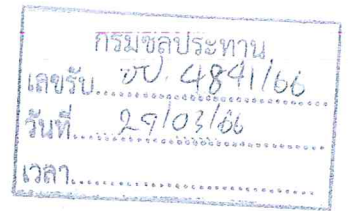 กรมชลประทาน
เลขรับ ขป. 4841/66
วันที่ 29/03/66
เวลา